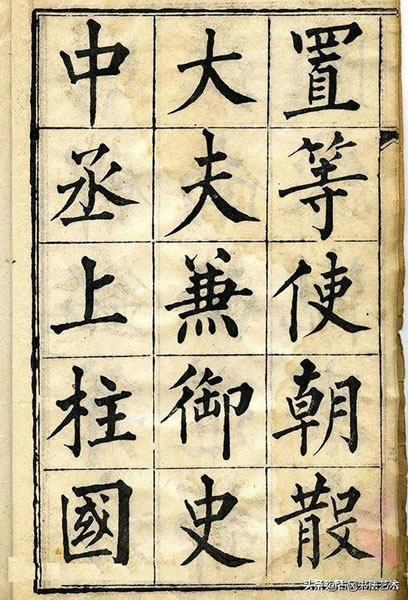 置等使朝散
大夫兼御史
中丞上柱國
头条@古风书法艺术